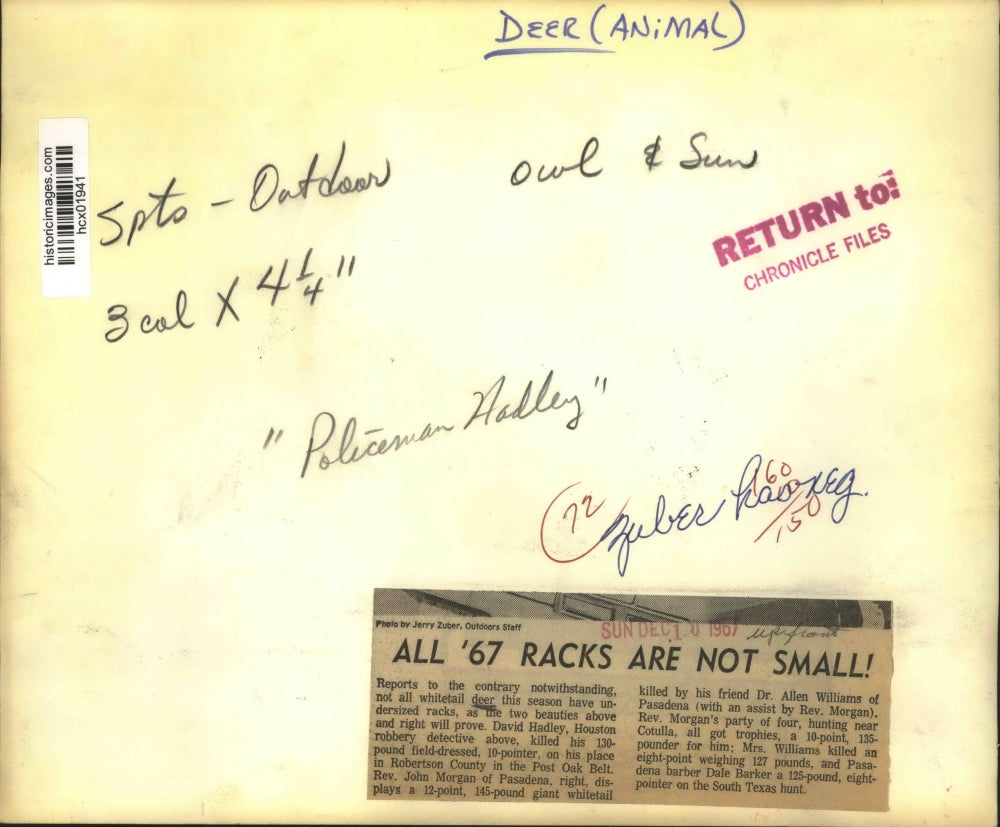 DEER (ANIMAL)
historicimages.com
hcx01941
Spts - Outdoor
owl & Sun
RETURN to:
CHRONICLE FILES
3 col X 4 1/4"
"Policeman Hadley"
72
Zuber has neg.
160
150
Photo by Jerry Zuber, Outdoors Staff
SUN DEC 10 1967
upfront
ALL '67 RACKS ARE NOT SMALL!
Reports to the contrary notwithstanding,
not all whitetail deer this season have un-
dersized racks, as the two beauties above
and right will prove. David Hadley, Houston
robbery detective above, killed his 130-
pound field-dressed, 10-pointer, on his place
in Robertson County in the Post Oak Belt.
Rev. John Morgan of Pasadena, right, dis-
plays a 12-point, 145-pound giant whitetail
killed by his friend Dr. Allen Williams of
Pasadena (with an assist by Rev. Morgan).
Rev. Morgan's party of four, hunting near
Cotulla, all got trophies, a 10-point, 135-
pounder for him; Mrs. Williams killed an
eight-point weighing 127 pounds, and Pasa-
dena barber Dale Barker a 125-pound, eight-
pointer on the South Texas hunt.